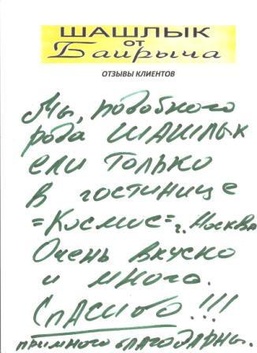 ШАШЛЫК
ОТ
Байрыча
ОТЗЫВЫ КЛИЕНТОВ
Мы, подобного
рода ШАШЛЫК
ели только
в гостинице
=Космос= г. Москва
Очень вкусно
и много.
Спасибо!!!
примного благодарны.